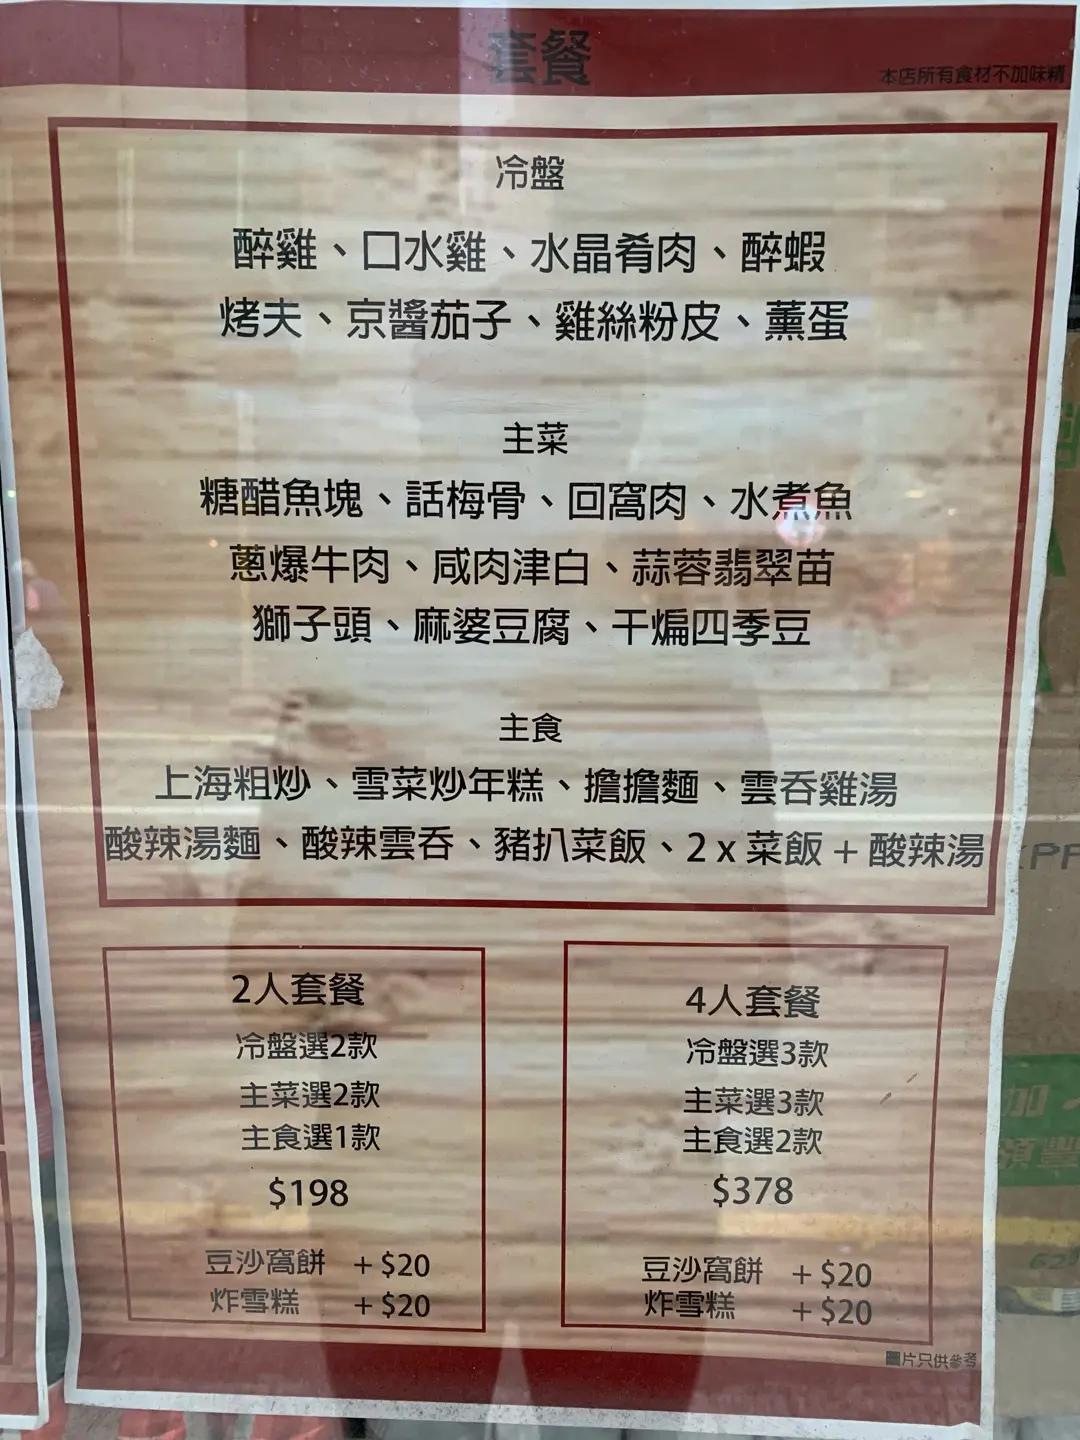 套餐
本店所有食材不加味精
冷盤
醉雞、口水雞、水晶肴肉、醉蝦
烤夫、京醬茄子、雞絲粉皮、薰蛋
主菜
糖醋魚塊、話梅骨、回窩肉、水煮魚
蔥爆牛肉、咸肉津白、蒜蓉翡翠苗
獅子頭、麻婆豆腐、干煸四季豆
主食
上海粗炒、雪菜炒年糕、擔擔麵、雲吞雞湯
酸辣湯麵、酸辣雲吞、豬扒菜飯、2 x 菜飯 + 酸辣湯
2人套餐
冷盤選2款
主菜選2款
主食選1款
$198
豆沙窩餅 + $20
炸雪糕 + $20
4人套餐
冷盤選3款
主菜選3款
主食選2款
$378
豆沙窩餅 + $20
炸雪糕 + $20
圖片只供參考